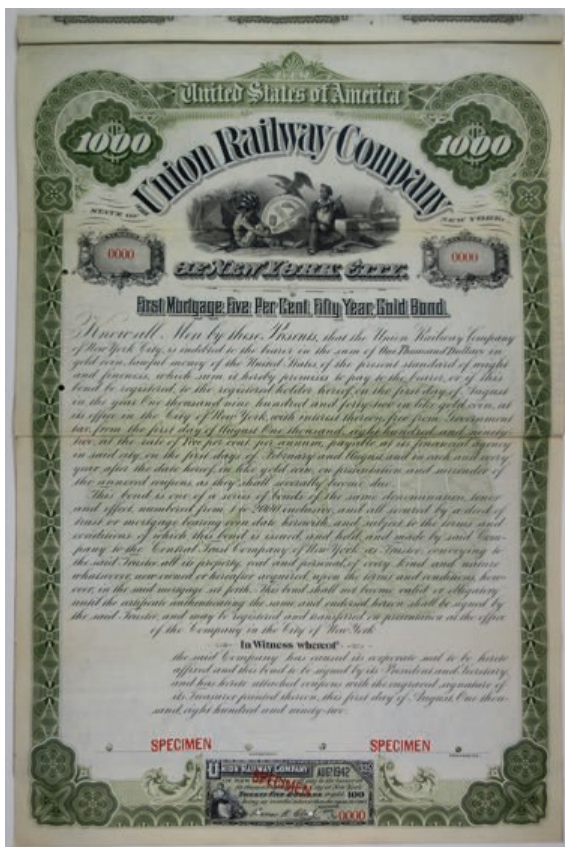 United States of America
1000
1000
Union Railway Company
STATE OF
NEW YORK.
0000
0000
OF NEW YORK CITY.
First Mortgage, Five Per Cent, Fifty Year, Gold Bond.
Know all Men by these Presents, that the Union Railway Company
of New York City, is indebted to the bearer in the sum of One Thousand Dollars in
gold coin, lawful money of the United States, of the present standard of weight
and fineness, which sum it hereby promises to pay to the bearer, or if this
bond be registered, to the registered holder hereof, on the first day of August
in the year One thousand nine hundred and forty-two in like gold coin, at
its office in the City of New York, with interest thereon, free from Government
tax, from the first day of August One thousand, eight hundred and ninety-
two, at the rate of five per cent. per annum, payable at its financial agency
in said city, on the first days of February and August, and in each and every
year after the date hereof, in like gold coin, on presentation and surrender of
the annexed coupons, as they shall severally become due.
This bond is one of a series of bonds of the same denomination, tenor
and effect, numbered from 1 to 2000 inclusive, and all secured by a deed of
trust or mortgage bearing even date herewith, and subject to the terms and
conditions of which this bond is issued, and held, and made by said Com-
pany to the Central Trust Company of New York, as Trustee, conveying to
the said Trustee all its property, real and personal, of every kind and nature
whatsoever, now owned or hereafter acquired, upon the terms and conditions, how-
ever, in the said mortgage set forth. This bond shall not become valid or obligatory
until the certificate authenticating the same, and endorsed hereon shall be signed by
the said Trustee, and may be registered and transferred on presentation at the office
of the Company in the City of New York.
In Witness whereof
the said Company has caused its corporate seal to be hereto
affixed and this bond to be signed by its President and Secretary,
and has hereto attached coupons with the engraved signature of
its Treasurer printed thereon, this first day of August, One thou-
sand, eight hundred and ninety-two.
SPECIMEN
SPECIMEN
UNION RAILWAY COMPANY
AUG. 1942
SPECIMEN
TWENTY FIVE DOLLARS
100
0000